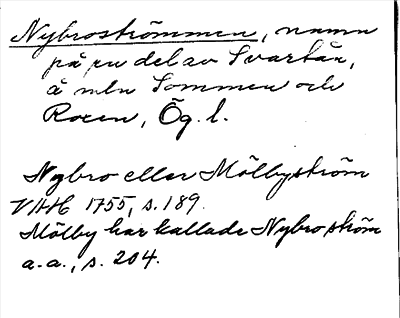 Nybroströmmen, namn
på en del av Svartån,
å mln Sommen och
Roxen, Ög. l.
Nybro eller Mölbyström
VHH 1755, s. 189.
Mölby har kallade Nybro ström
a.a., s. 204.